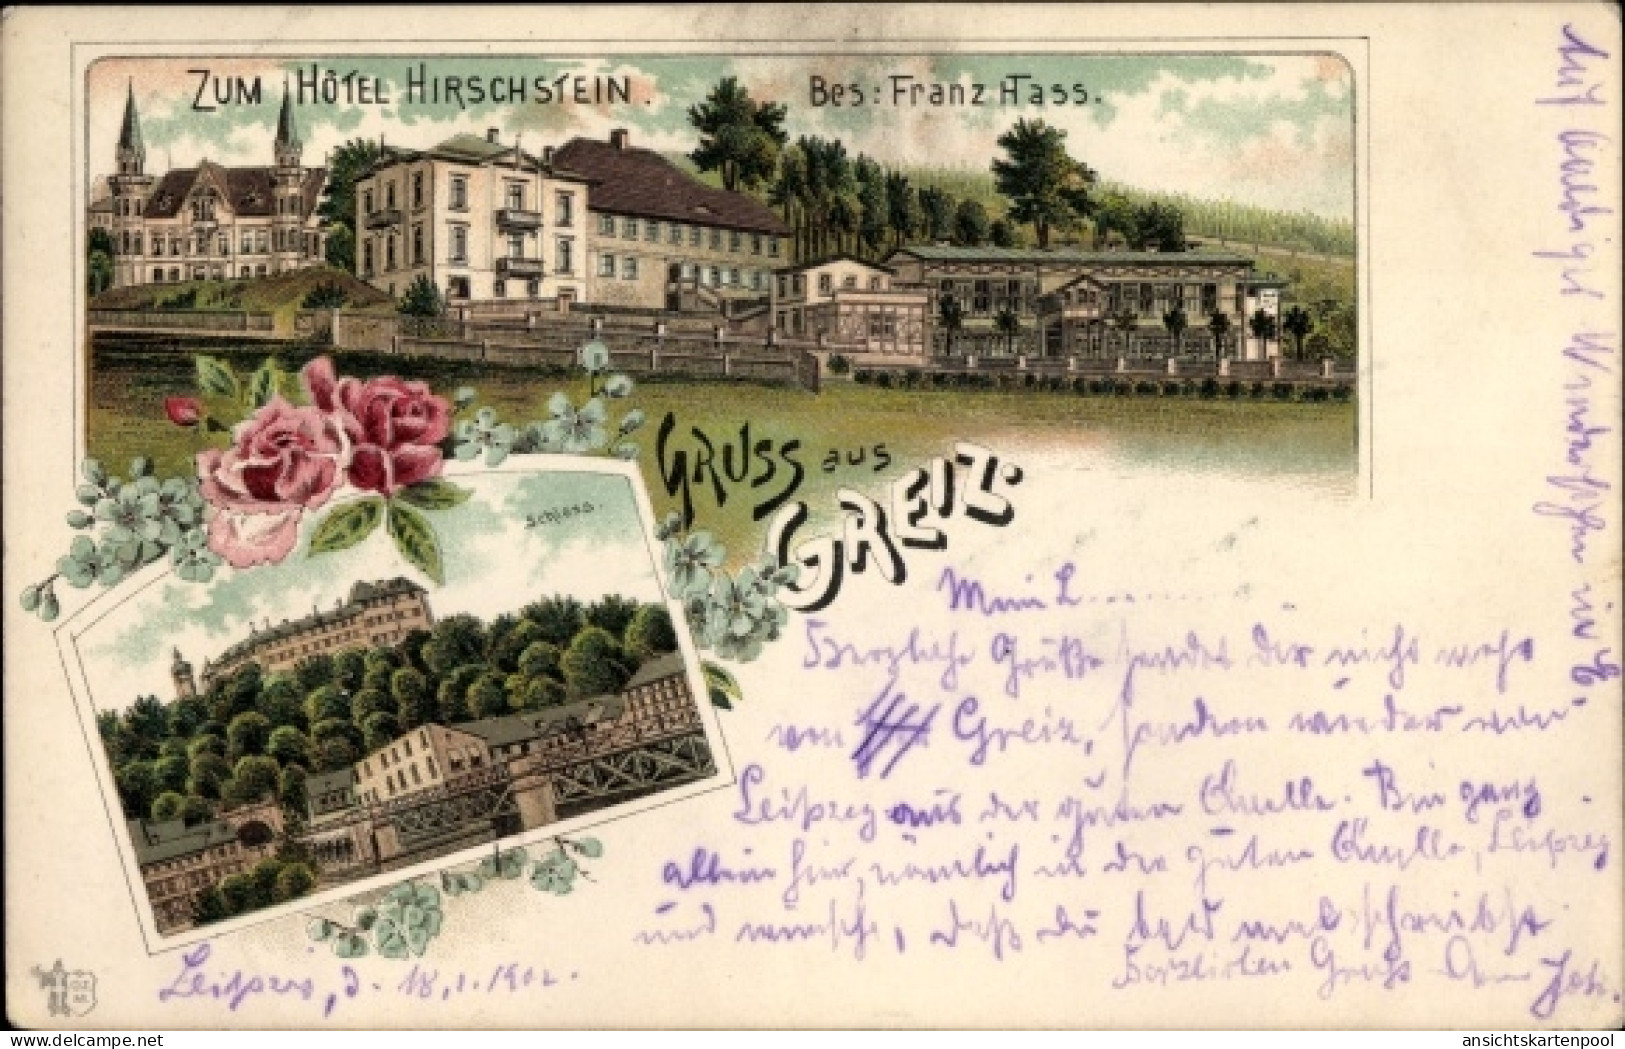 ZUM HÔTEL HIRSCHSTEIN.
Bes: Franz Hass.
GRUSS aus
GREIZ
Schloss.
Mein L..........
Herzliche Grüße sendet dir nicht mehr
von Greiz, sondern wieder von
Leipzig aus der guten Quelle. Bin ganz
allein hier, nämlich in der guten Quelle, Leipzig
und wünsche, daß du bald mal schreibst
Herzlichen Gruß
Leipzig, d. 18.1.1902.
Auf baldiges Wiedersehen in G.
ansichtskartenpool